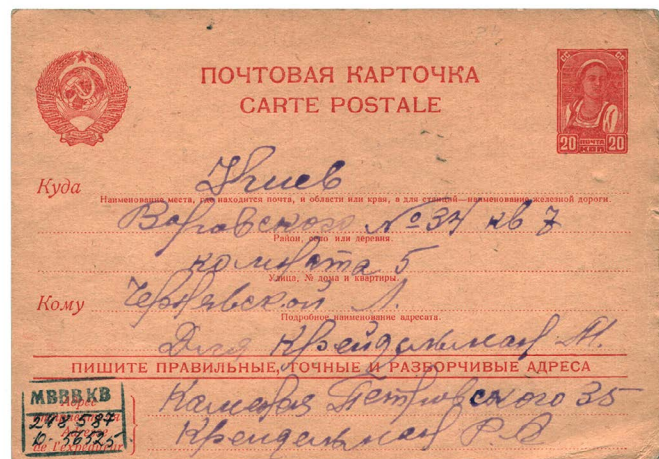 ПОЧТОВАЯ КАРТОЧКА
CARTE POSTALE
20 ПОЧТА 20
КОП
Куда Киев
Наименование места, где находится почта, и области или края, а для станций—наименование железной дороги
Воровского №34 кв 7
Район, село или деревня.
комната 5
Улица, № дома и квартиры.
Кому Чернявской Л.
Подробное наименование адресата.
Для Крейдельман М.
ПИШИТЕ ПРАВИЛЬНЫЕ, ТОЧНЫЕ И РАЗБОРЧИВЫЕ АДРЕСА
Петровского 35
Крейдельман Р.В
Адрес
de l'expéditeur